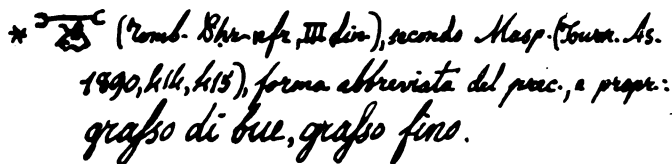 * (Tomb. Bhr-nfr, III din), secondo Masp. (Journ. As.
1890, 414, 415), forma abbreviata del prec., e propr.:
grasso di bue, grasso fino.